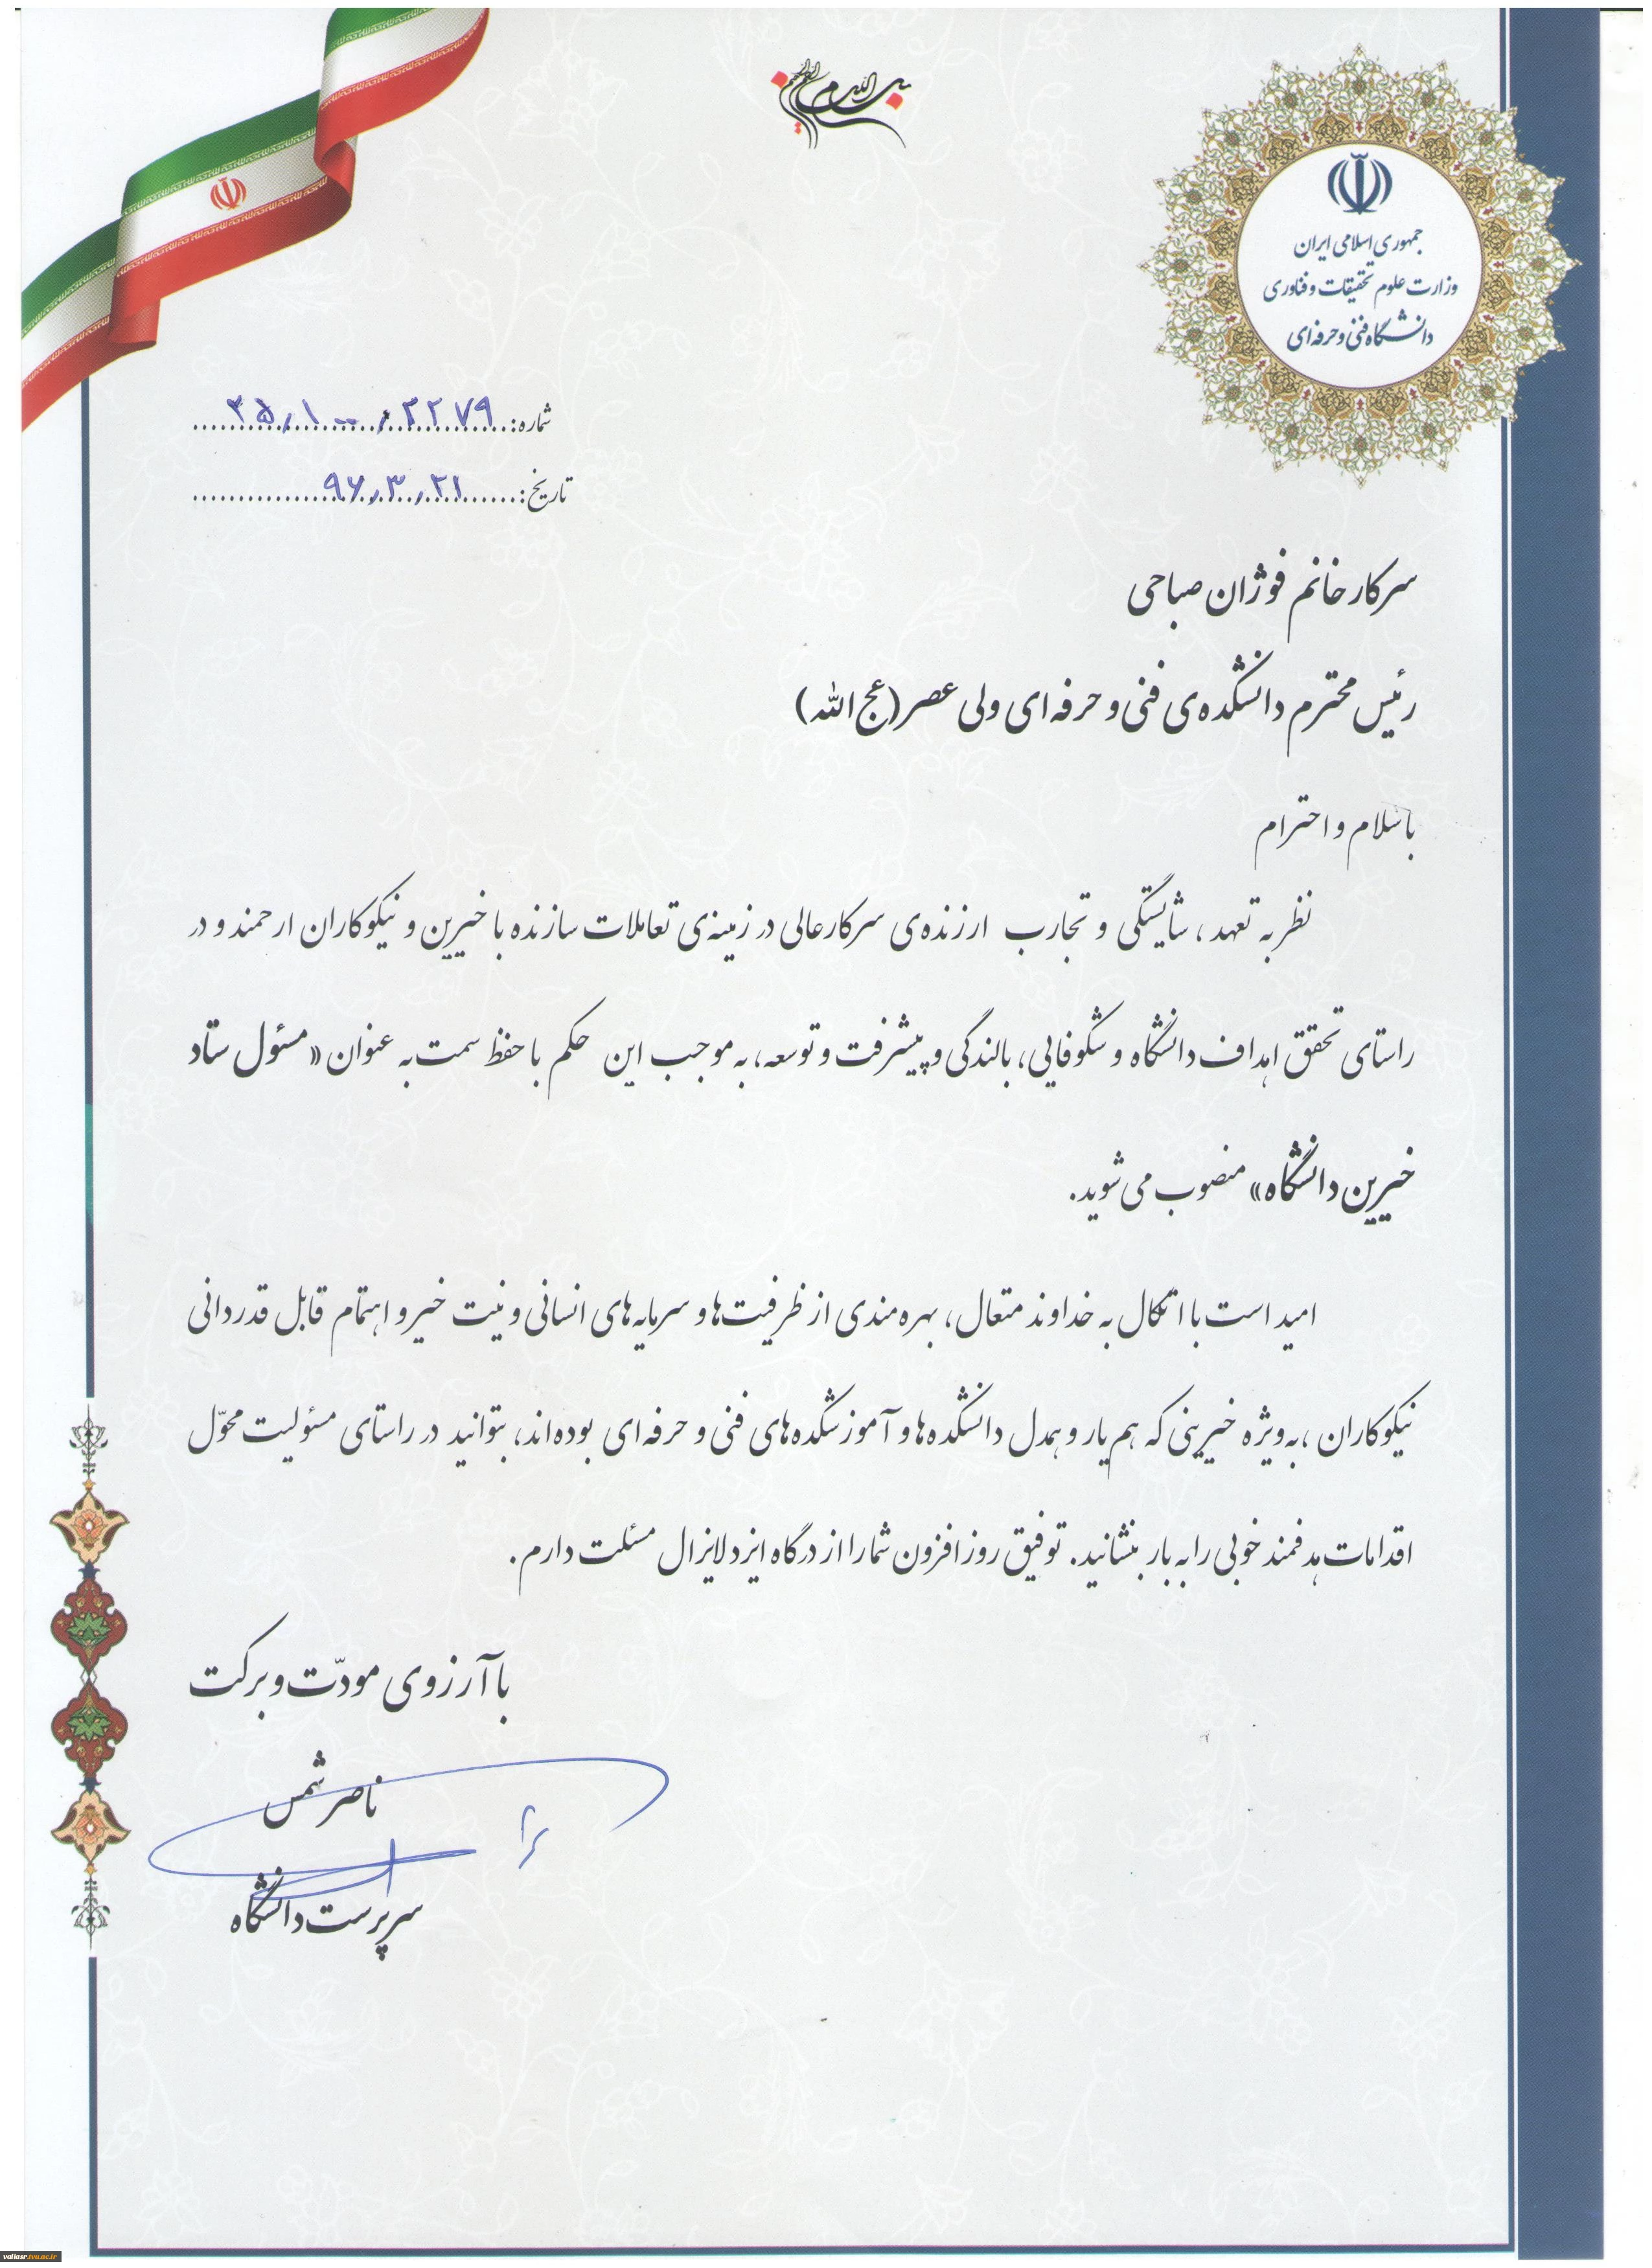 بسم الله الرحمن الرحیم
جمهوری اسلامی ایران
وزارت علوم تحقیقات و فناوری
دانشگاه فنی و حرفه‌ای
شماره: ۲۵٫۱۰۰٫۲۲۷۹
تاریخ: ۹۶٫۳٫۲۱
سرکار خانم فوژان صباحی
رئیس محترم دانشکده‌ی فنی و حرفه ای ولی عصر (عج الله)
با سلام و احترام
نظر به تعهد، شایستگی و تجارب ارزنده‌ی سرکارعالی در زمینه‌ی تعاملات سازنده با خیرین و نیکوکاران ارجمند و در
راستای تحقق اهداف دانشگاه و شکوفایی، بالندگی و پیشرفت و توسعه، به موجب این حکم با حفظ سمت به عنوان «مسئول ستاد
خیرین دانشگاه» منصوب می‌شوید.
امید است با اتکال به خداوند متعال، بهره مندی از ظرفیت‌ها و سرمایه‌های انسانی و نیت خیر و اهتمام قابل قدردانی
نیکوکاران، به‌ویژه خیرینی که هم یار و همدل دانشکده‌ها و آموزشکده‌های فنی و حرفه ای بوده‌اند، بتوانید در راستای مسئولیت محوّل
اقدامات هدفمند خوبی را به بار بنشانید. توفیق روز افزون شما را از درگاه ایزد لایزال مسئلت دارم.
با آرزوی مودّت و برکت
ناصر شمس
سرپرست دانشگاه
valiasr.tvu.ac.ir